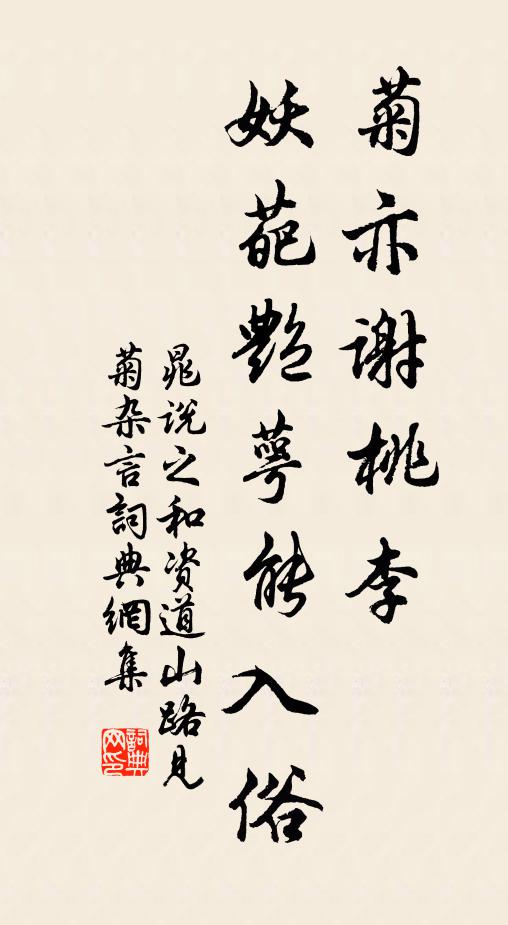 菊亦谢桃李
妖葩艷萼能入俗
晁说之和资道山路见
菊杂言詞典網集
詞典网印